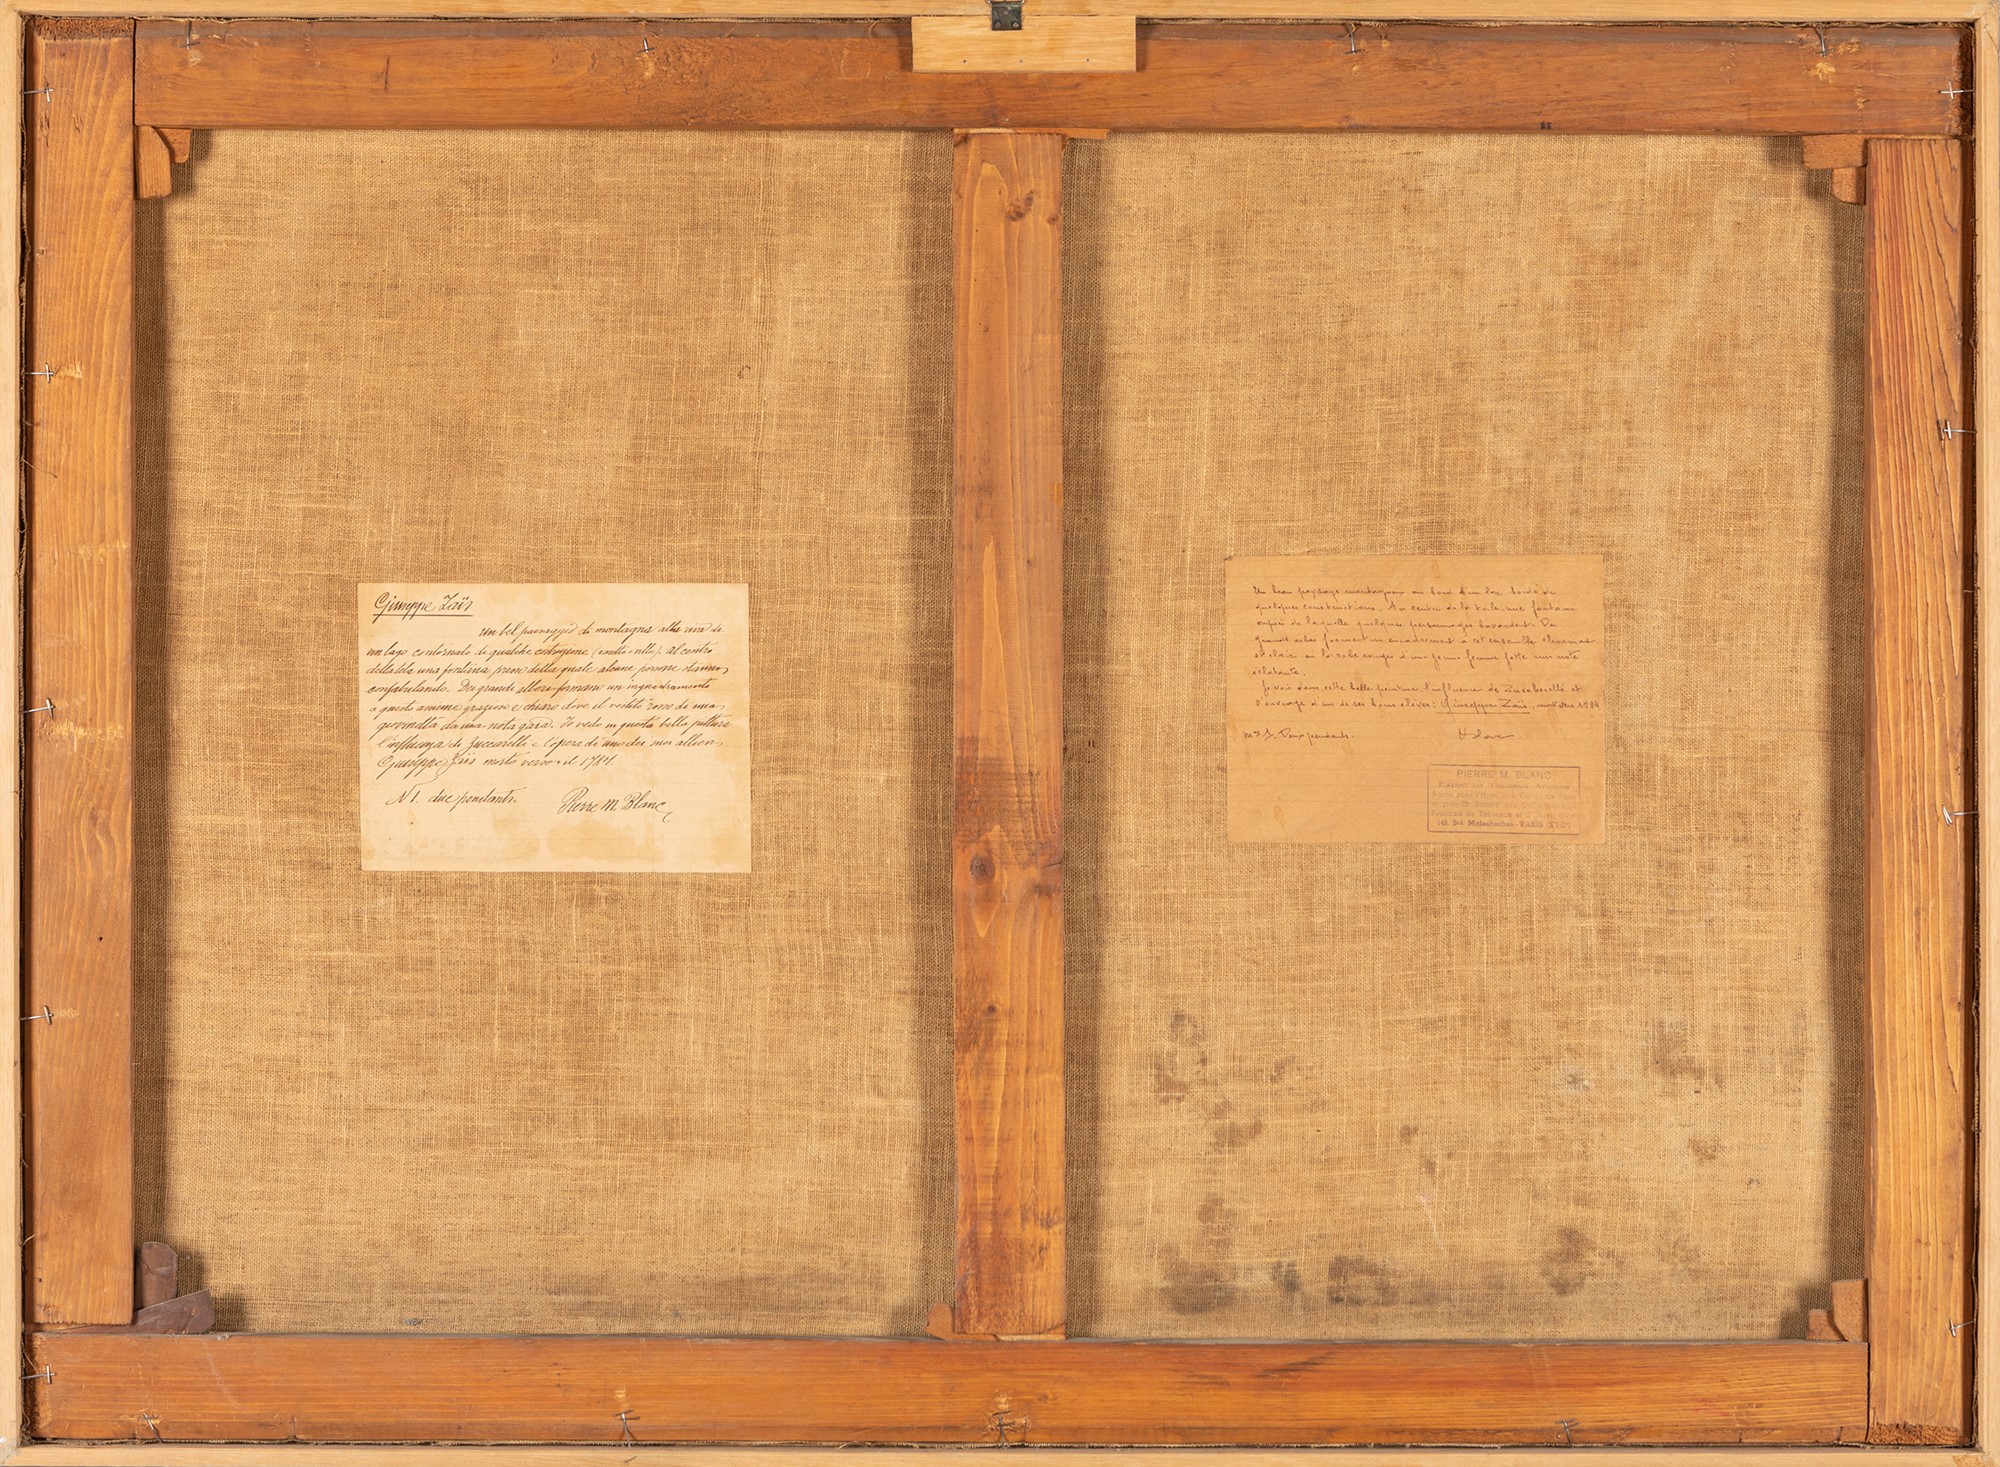 Giuseppe Zaïs
un bel paesaggio di montagna alla riva di
un lago contornato di qualche costruzione Al centro
della tela una fontana presso della quale alcune persone stanno
confabulando. Dei grandi alberi formano un inquadramento
a questo ameno grazioso e chiaro dove il vestito rosso di una
giovinetta da una nota gaia. Io vedo in questa bella pittura
l'influenza di Zuccarelli e l'opera di uno dei suoi allievi
Giuseppe Zaïs morto verso il 1784.
N 1. due pendants.
Pierre M. Blanc
Un beau paysage montagneux au bord d'un lac bordé de
quelques constructions. Au centre de la toile, une fontaine
auprès de laquelle quelques personnages bavardent. De
grands arbres forment un encadrement à cet ensemble
et clair où la robe rouge d'une jeune femme jette une note
éclatante.
Je vois dans cette belle peinture l'influence de Zuccarelli et
l'ouvrage d'un de ses bons élèves: Giuseppe Zaïs, mort vers 1784
Deux pendants.
Blanc
PIERRE M. BLANC
Expert en Tableaux Anciens
de Tableaux
Bd. Malesherbes - PARIS (XVIIe)